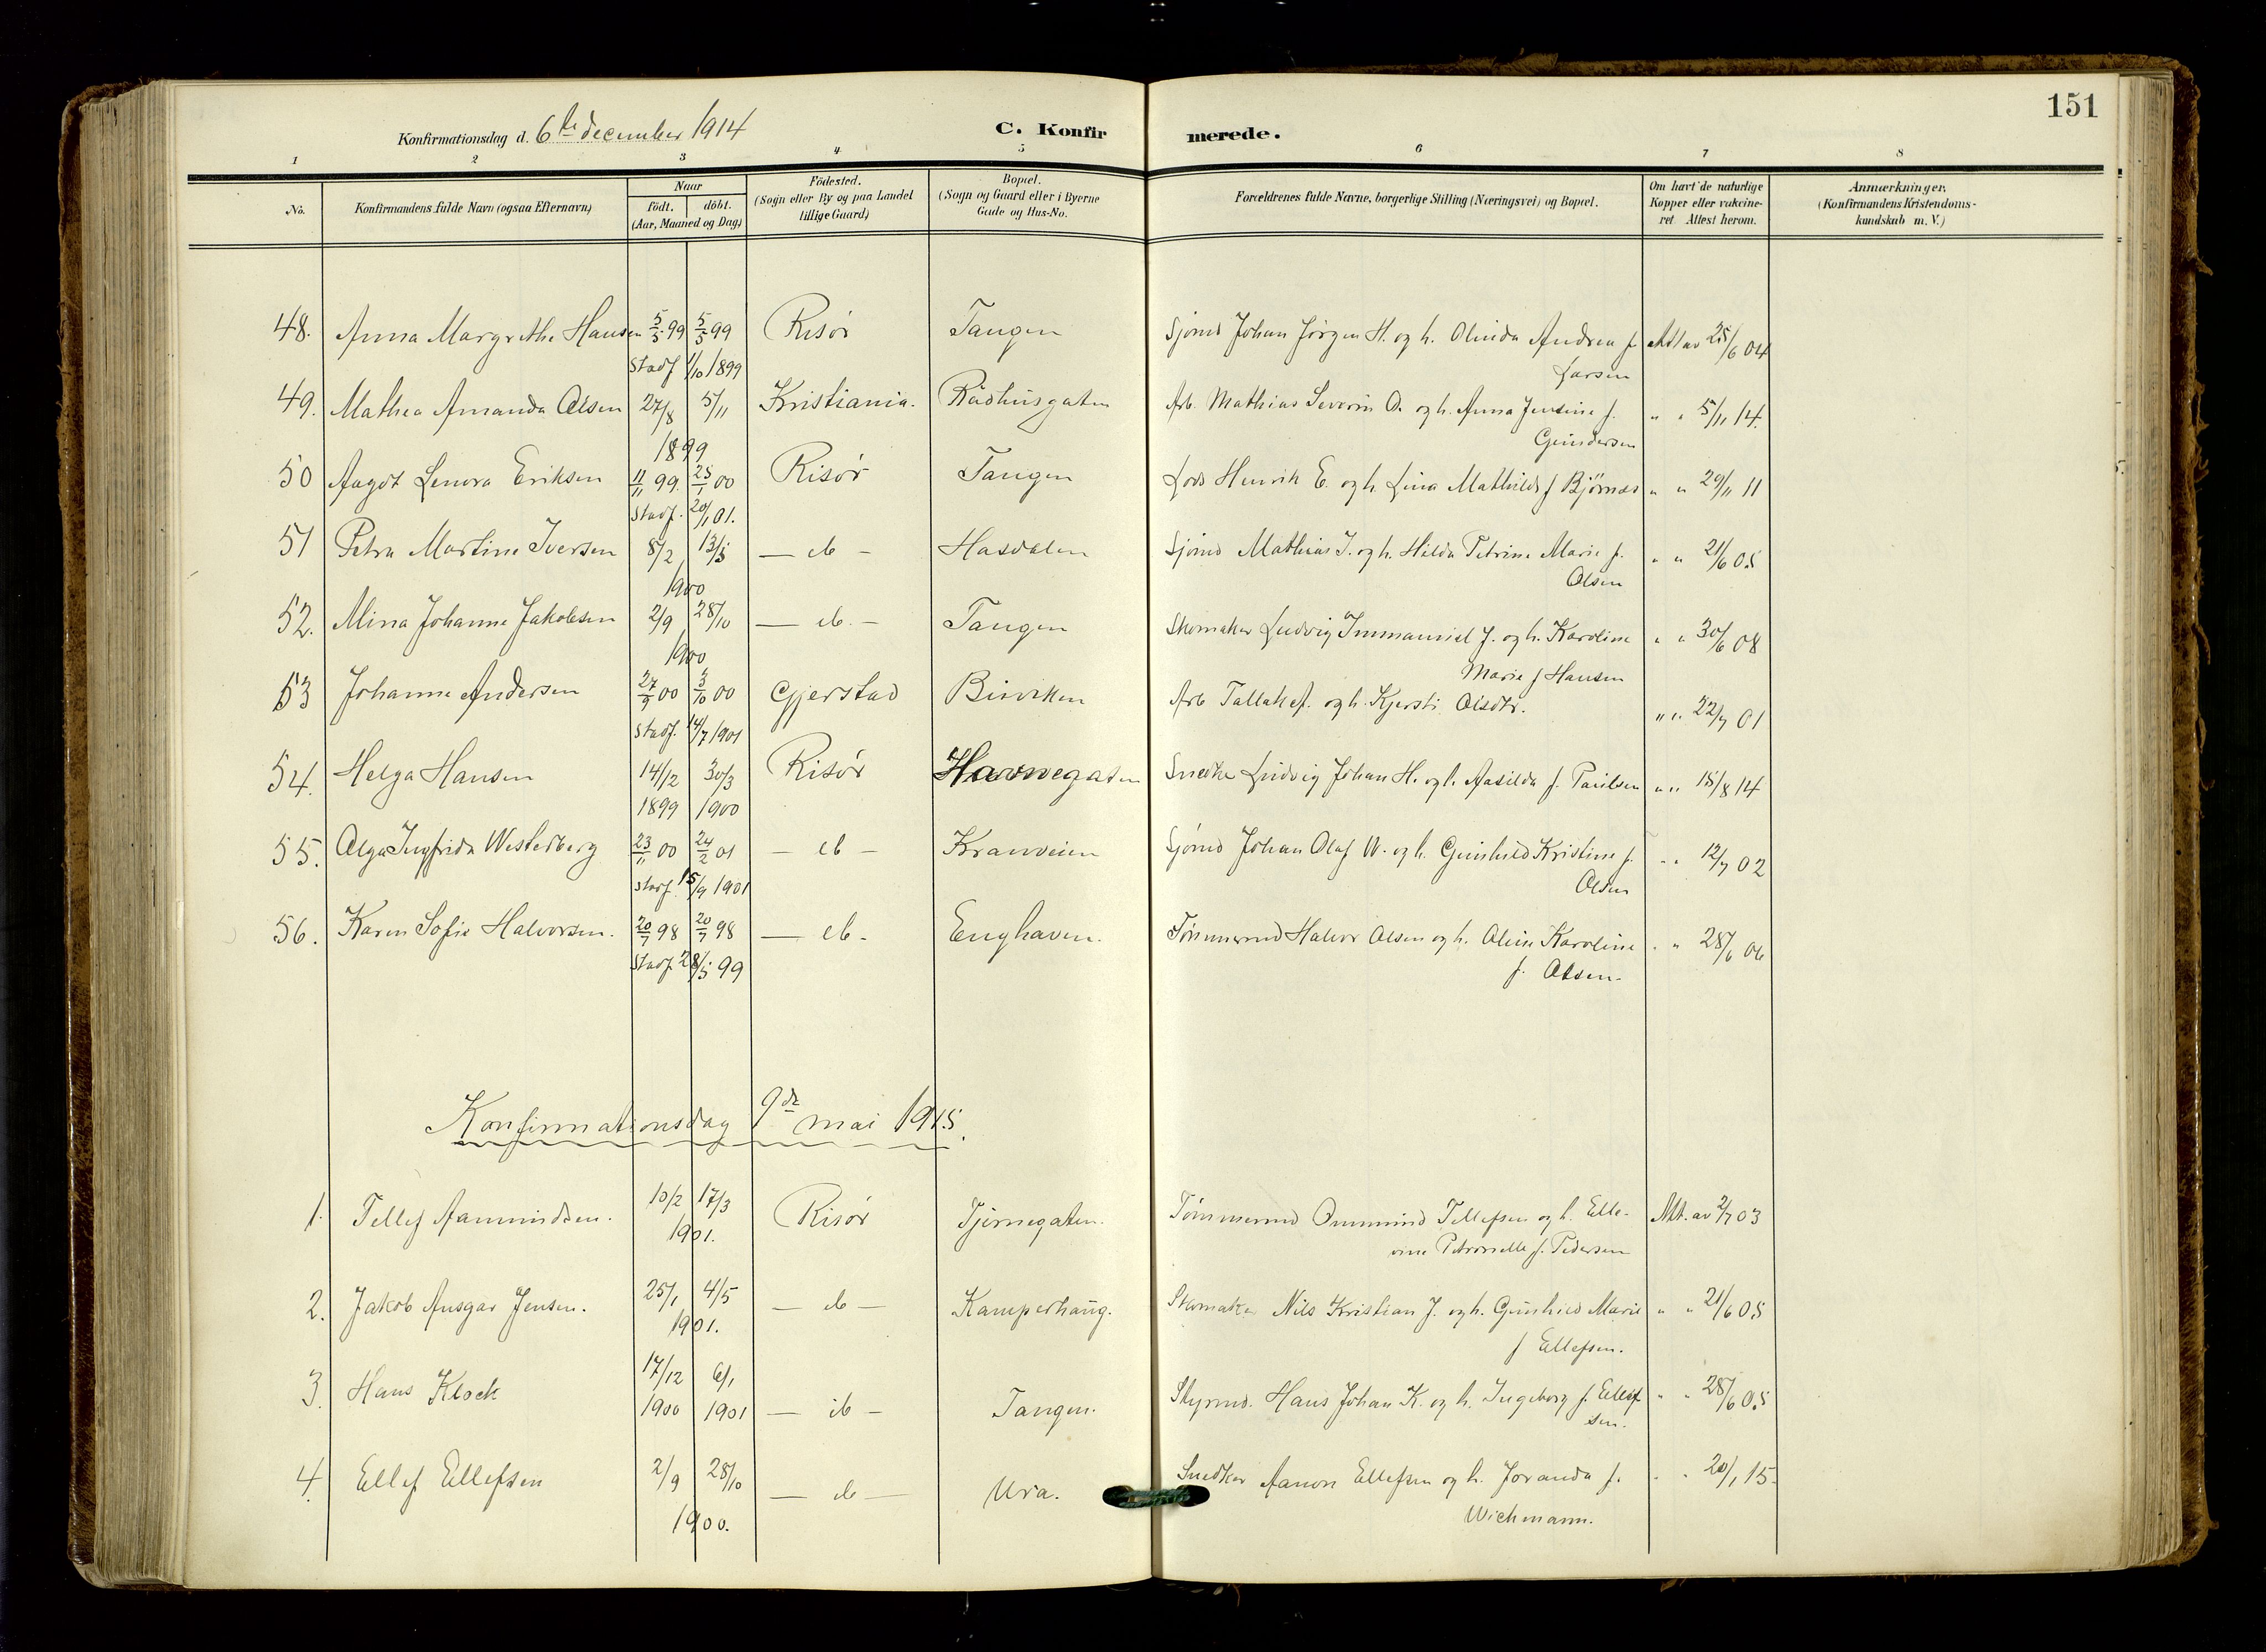 151
Konfirmationsdag d. 6te december 1914
C. Konfirmerede.
1 2 3 4 5 6 7 8
No. Konfirmandens fulde Navn (ogsaa Efternavn) Naar født. døbt. (Aar, Maaned og Dag) Födested. (Sogn eller By og paa Landet tillige Gaard) Bopæl. (Sogn og Gaard eller i Byerne Gade og Hus-No. Forældrenes fulde Navne, borgerlige Stilling (Næringsvei) og Bopæl. Om havt de naturlige Kopper eller vakcineret. Attest herom. Anmærkninger. (Konfirmandens Kristendomskundskab m. V.)
48. Anna Margrethe Hansen 5/5 99 5/5 99 Risör Tangen Sjömd Johan Jörgen H. og h. Olinda Andrea f. Att av 25/6 04
Stadf 1/10 1899 Larsen
49. Mathea Amanda Olsen 27/8 5/11 Kristiania. Rådhusgaten Arb. Mathias Severin O. og h. Anna Jensine f. " " 5/11 14.
1899 Gundersen
50 Aagot Lenora Eriksen 11/11 99. 25/1 00 Risör Tangen Lods Henrik E. og h. Lina Mathilde f Björnæs " " 29/11 11
Stadf. 20/1 01.
51 Petra Martine Iversen 8/2 13/5 — ib - Hasdalen Sjömd Mathias I. og h. Hilda Petrine Marie f. " " 21/6 05
1900 Olsen
52. Mina Johanne Jakobsen 2/9 28/10 — ib. - Tangen Skomaker Ludvig Immanuel J. og h. Karoline " " 30/6 08
1900 Marie f Hansen
53 Johanne Andersen 27/9 00 3/10 00 Gjerstad Buviken Arb Tallak A. og h. Kjersti Olsdtr. " " 22/7 01
Stadf. 14/7 1901
54. Helga Hansen 14/12 30/3 Risör Havnegaten Snedker Ludvig Johan H. og h. Aasilda f. Paulsen " " 15/8 14
1899 1900
55. Olga Ingfrida Westerberg 23/11 00 24/2 01 - ib - Kranveien Sjömd Johan Olaf W. og h. Gunhild Kristine f. " " 12/7 02
Stadf. 15/9 1901 Olsen
56. Karen Sofie Halvorsen. 20/7 98 20/7 98 — ib - Enghaven. Tömmermd Halvor Olsen og h. Karoline " " 28/6 06
Stadf. 28/5 99 f. Olsen.
Konfirmationsdag 9de mai 1915.
1. Tellef Aanmundsen. 10/2 17/3 Risör Tjernegaten. Tömmermd Ommund Tellefsen og h. Elle- Att. av 2/7 03
1901. vine Petronelle f. Pedersen
2. Jakob Ansgar Jensen. 25/1 4/5 — ib — Kamperhaug. Skomaker Nils Kristian J. og h. Gunhild Marie " " 21/6 05
1901. f Ellefsen.
3. Hans Klock 17/12 6/1 Hans Johan K. og h. Ingeborg f. Ellef- " " 28/6 05
1900 1901 — ib - Tangen. sen.
4. Ellef Ellefsen 2/9 28/10 — ib — Ura. Snedker Aanon Ellefsen og h. Joranda f. " " 20/1 15.
1900. Wichmann.